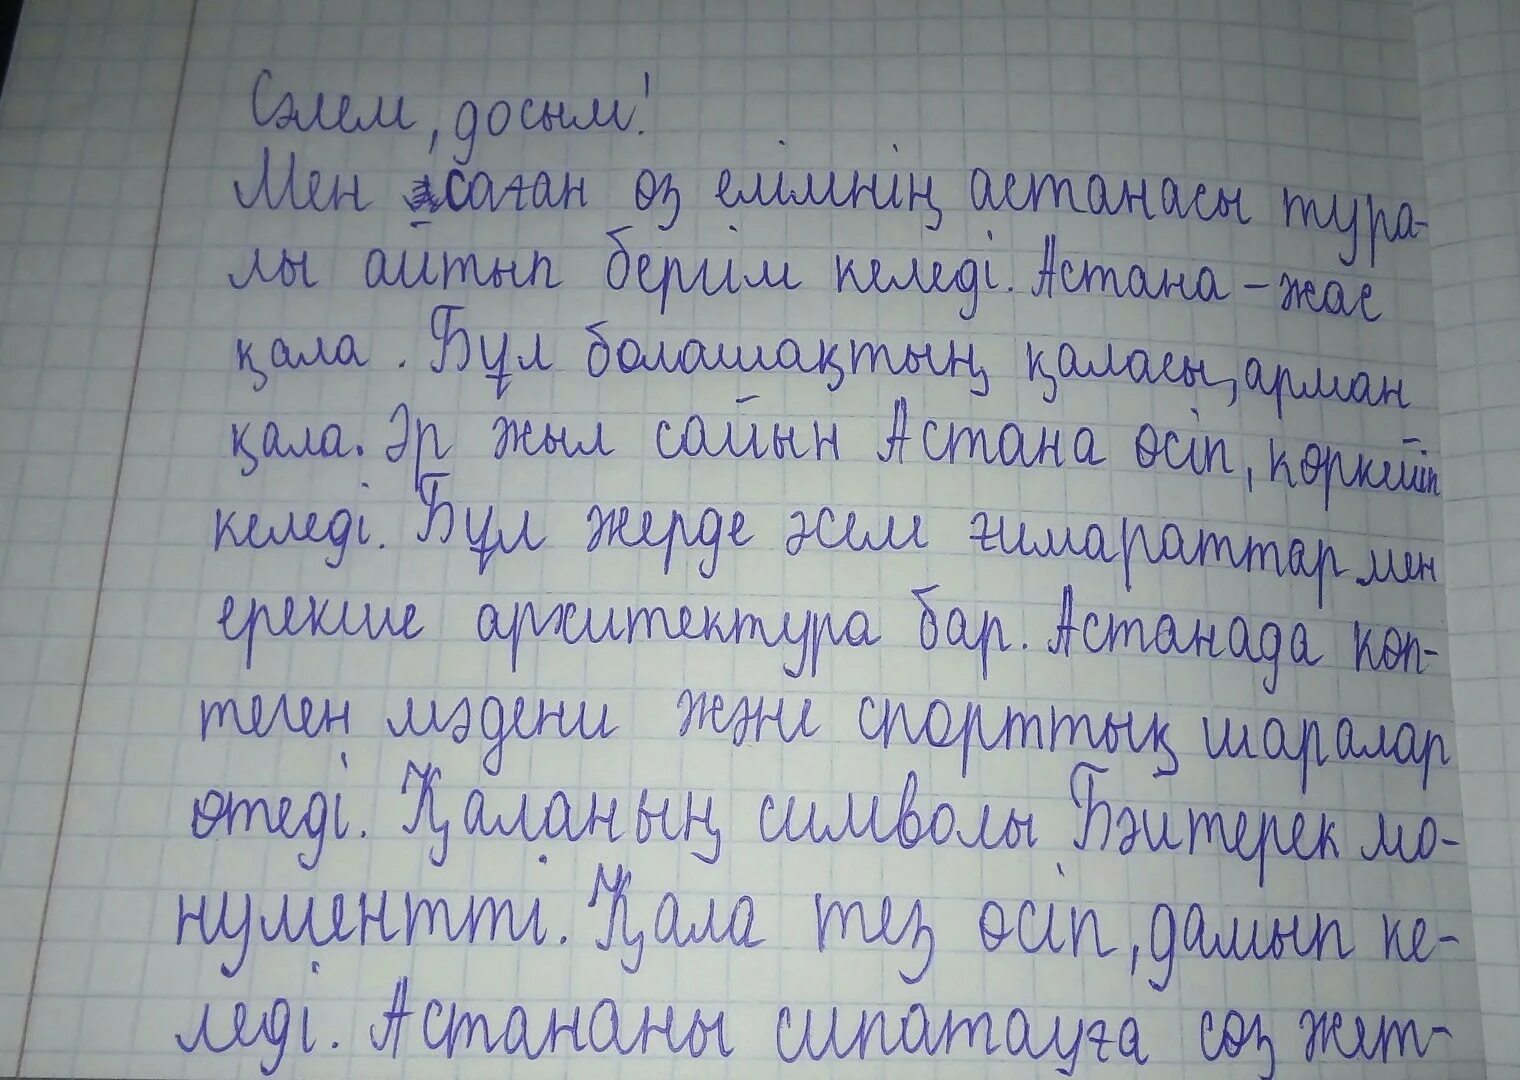 Сәлем, досым!
Мен саған өз елімнің астанасы тура-
лы айтып бергім келеді. Астана – жас
қала. Бұл болашақтың қаласы, арман
қала. Әр жыл сайын Астана өсіп, көркейіп
келеді. Бұл жерде әсем ғимараттар мен
ерекше архитектура бар. Астанада көп-
теген мәдени және спорттық шаралар
өтеді. Қаланың символы Бәйтерек мо-
нументті. Қала тез өсіп, дамып ке-
леді. Астананы сипатауға сөз жет-